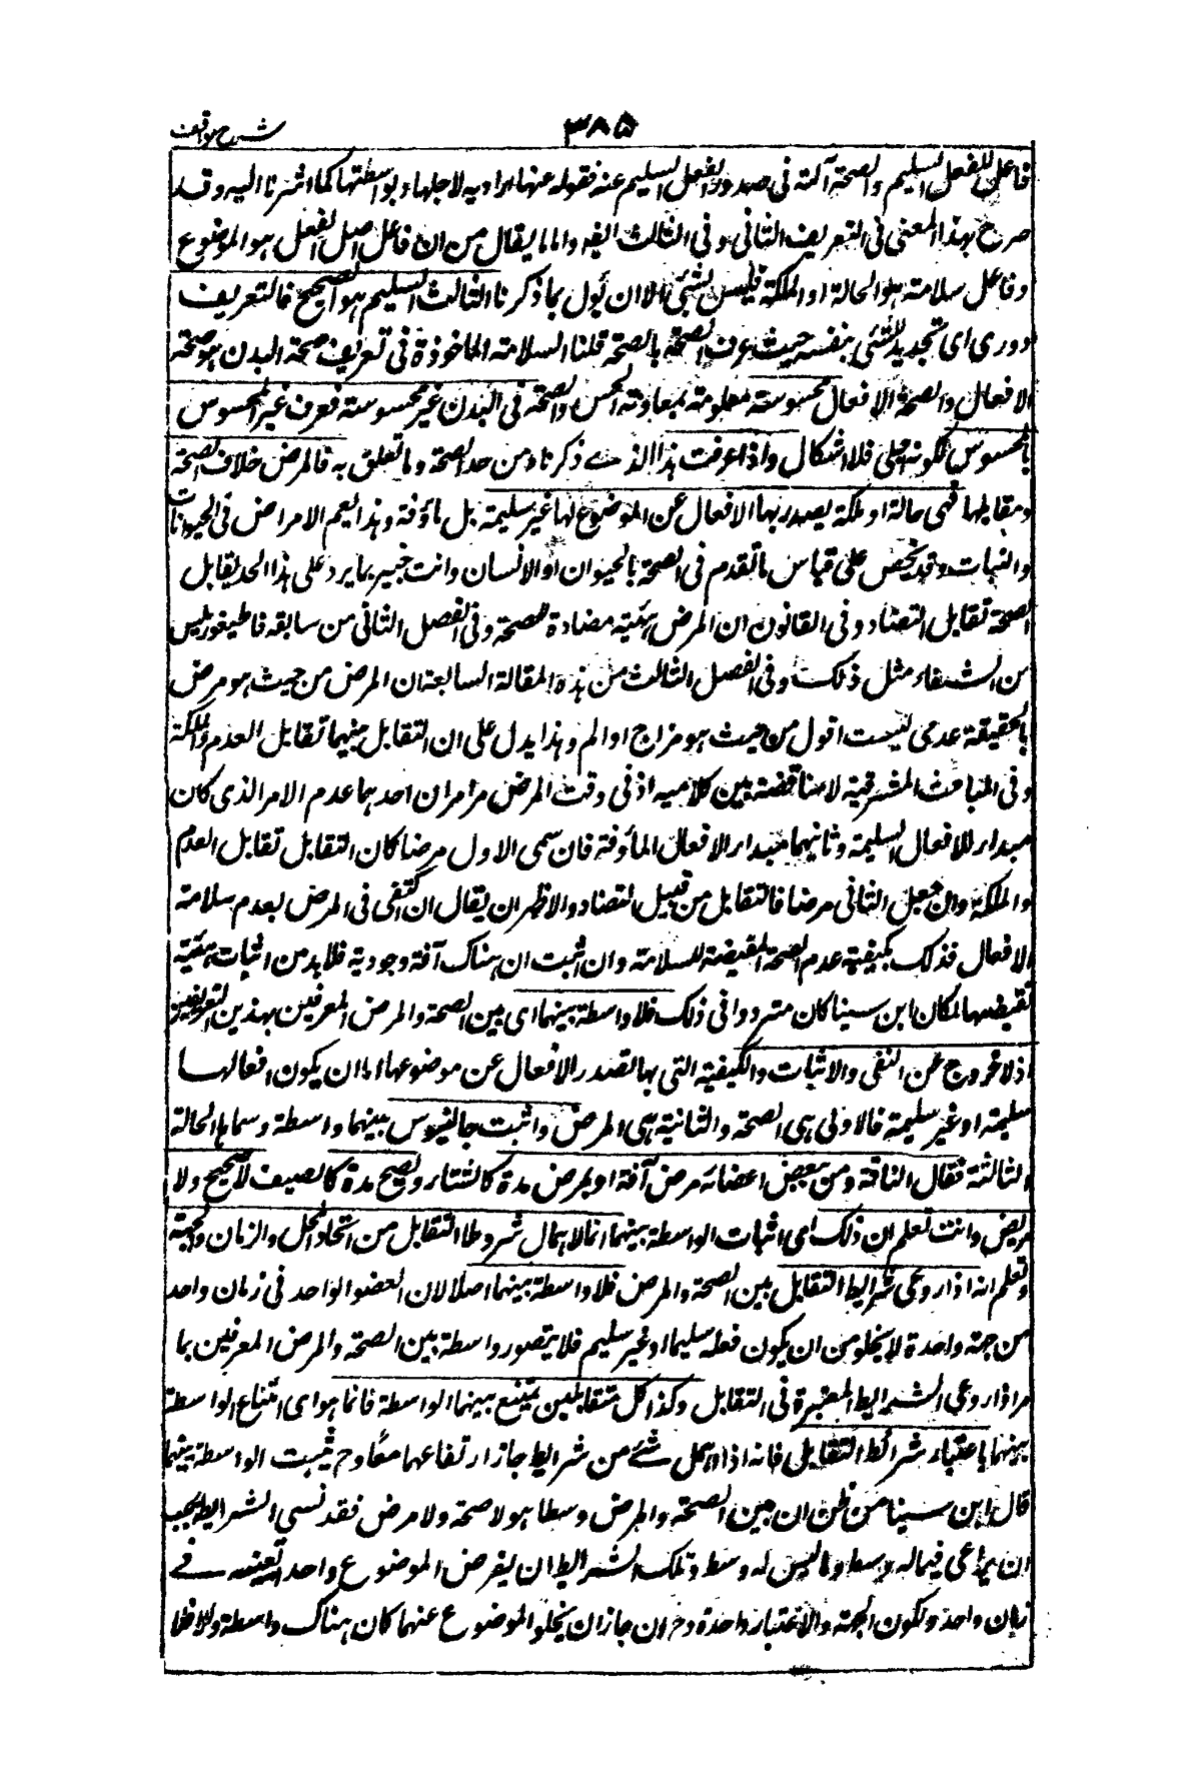 شرح مواقف
٣٨٥
فاعل للفعل السليم والصحة آلته فى صدور الفعل السليم عنه فقوله عنها اراد به لاجلها وبواسطتها كما اشرنا اليه وقد
صرح بهذا المعنى فى التعريف الثانى وفى الثالث ايضا واما ما يقال من ان فاعل اصل الفعل هو الموضوع
وفاعل سلامته هو الحالة او الملكة فليس بشئ الا ان يؤل بما ذكرنا الثالث السليم هو الصحيح فالتعريف
دورى اى تحديد للشئ بنفسه حيث عرف الصحة بالصحة قلنا السلامة الماخوذة فى تعريف صحة البدن هو صحة
الافعال والصحة الافعال محسوسة معلومة بمعاونة الحس والصحة فى البدن غير محسوسة فعرف غير المحسوس
بالمحسوس لكونه اجلى فلا اشكال واذا عرفت هذا الذى ذكرناه من حد الصحة وما تعلق به فالمرض خلاف الصحة
ومقابلها فهى حالة او ملكة يصدر بها الافعال عن الموضوع لها غير سليمة بل مأوفة وهذا يعم الامراض فى الحيوانات
والنبات وقد يخص على قياس ما تقدم فى الصحة بالحيوان او الانسان وانت خبير بما يرد على هذا الحد تقابل
الصحة تقابل التضاد وفى القانون ان المرض هيئة مضادة للصحة وفى الفصل الثانى من سابعة قاطيغورياس
من الشفاء مثل ذلك وفى الفصل الثالث من هذه المقالة السابعة ان المرض من حيث هو مرض
بالحقيقة عدمى ليست اقول من حيث هو مزاج او الم وهذا يدل على ان التقابل بينهما تقابل العدم والملكة
وفى المباحث المشرقية لا مناقضة بين كلاميه اذ فى وقت المرض مرامران احدهما عدم الامر الذى كان
مبدأ للافعال السليمة وثانيهما مبدأ الافعال المأوفة فان سمى الاول مرضا كان التقابل تقابل العدم
والملكة وان جعل الثانى مرضا فالتقابل من قبيل التضاد والاظهر ان يقال ان اكتفى فى المرض بعدم سلامة
الافعال فذلك يكفيه عدم الصحة المقتضية للسلامة وان اثبت ان هناك آفة وجودية فلابد من اثبات هيئة
تقتضيها لمكان ابن سينا كان مترددا فى ذلك فلا واسطة بينهما اى بين الصحة والمرض المعرفين بهذين التعريفين
اذ لا خروج عن النفى والاثبات والكيفية التى بها تصدر الافعال عن موضوعها اما ان يكون افعالها
سليمة او غير سليمة فالاولى هى الصحة والثانية هى المرض واثبت جالينوس بينهما واسطة وسماها الحالة
الثالثة فقال الناقه ومن ببعض اعضائه مرض آفة او يمرض مدة كالشتاء ويصح مدة كالصيف لا صحيح ولا
مريض وانت تعلم ان ذلك اى اثبات الواسطة بينهما انما لاهمال شروط التقابل من اتحاد المحل والزمان والجهة
وتعلم انه اذا روعى شرايط التقابل بين الصحة والمرض فلا واسطة بينهما اصلا لان العضو الواحد فى زمان واحد
من جهة واحدة لا يخلو من ان يكون فعله سليما او غير سليم فلا يتصور واسطة بين الصحة والمرض المعرفين بما
مر اذا روعى الشرايط المعتبرة فى التقابل وكذا كل متقابلين يمتنع بينهما الواسطة فانما هو اى امتناع الواسطة
بينهما باعتبار شرائط التقابل فانه اذا اهمل شئ من شرايط جاز ارتفاعهما معا وح يثبت الواسطة بينهما
قال ابن سينا من ظن ان بين الصحة والمرض وسطا هو لا صحة ولا مرض فقد نسى الشرايط يجب
ان يراعى فيما له وسط وما ليس له وسط وتلك الشرايط ان يفرض الموضوع واحدا بعينه فى
زمان واحد وتكون الجهة والاعتبار واحدة وح ان جاز ان يخلو الموضوع عنهما كان هناك واسطة والا فلا